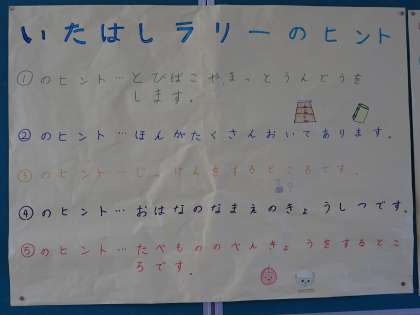 いたはしラリーのヒント
①のヒント…とびばこやまっとうんどうを
します。
②のヒント…ほんがたくさんおいてあります。
③のヒント…じっけんをするところです。
④のヒント…おはなのなまえのきょうしつです。
⑤のヒント…たべもののべんきょうをするとこ
ろです。